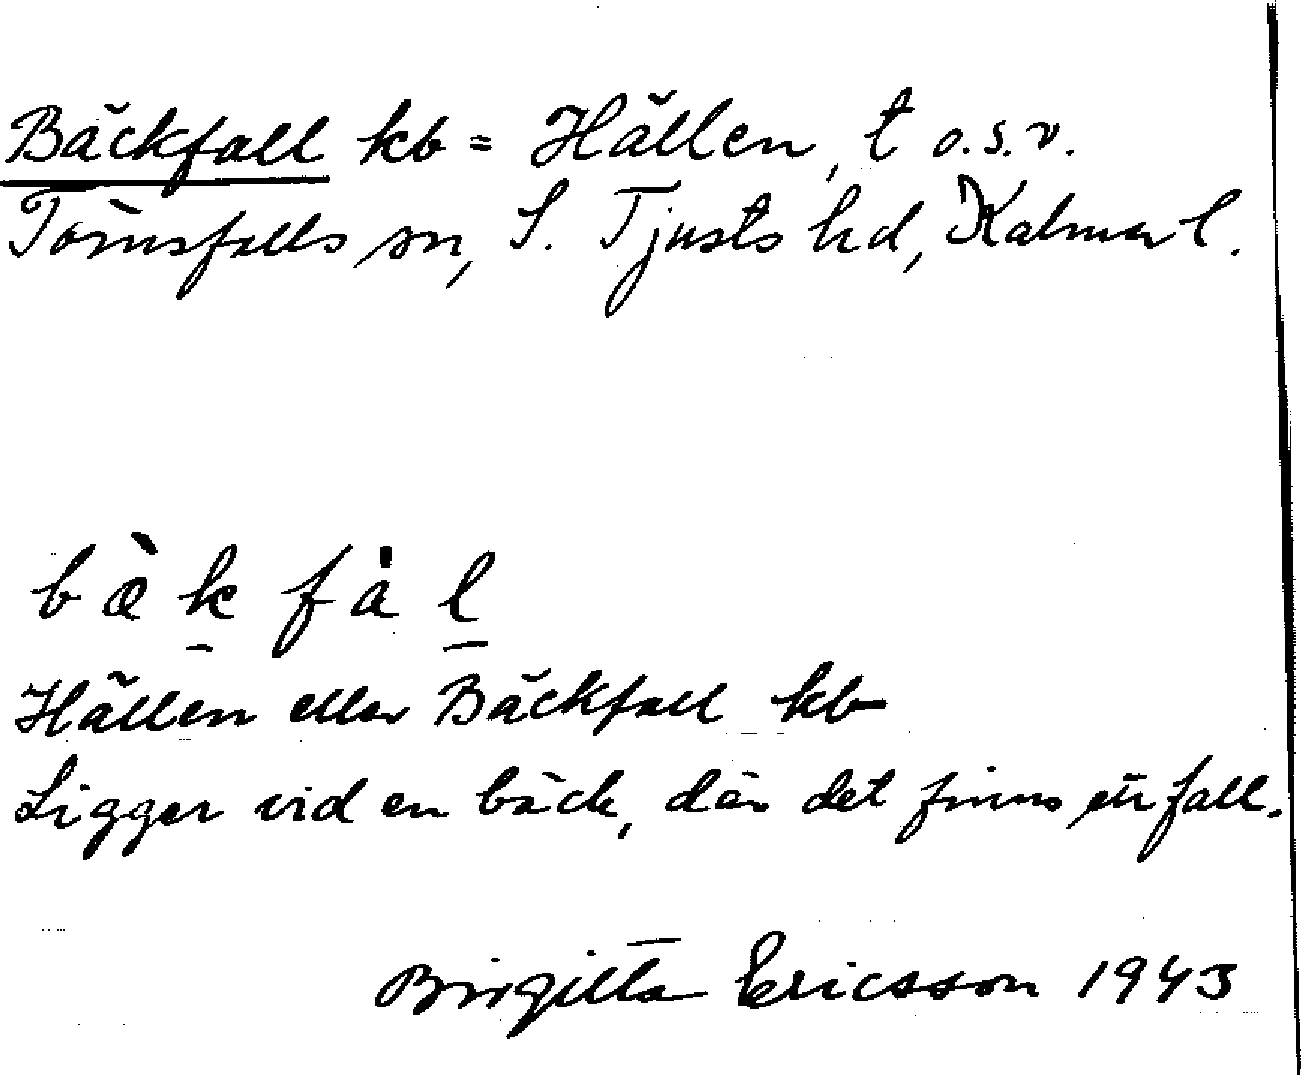 Bäckfall kb = Hällen, t o.s.v.
Törnsfalls sn, S. Tjusts hd, Kalmar l.
bæ̀k fàl
Hällen eller Bäckfall kb
Ligger vid en bäck, där det finns ett fall.
Birgitta Ericsson 1943